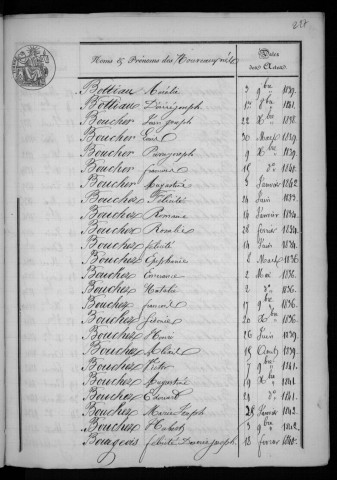 Noms & Prénoms des Nouveaux-nés
Dates des Actes
Botteau Aurélie 3 9bre 1839.
Botteau Désiré Joseph 1er 8bre 1841.
Boucher Jean Joseph 22 Xbre 1838.
Boucher Emile 30 Mars 1839.
Boucher Pierre Joseph 9 Xbre 1839.
Boucher François 15 do 1840.
Boucher Augustine 5 Janvier 1842.
Bouchez Félicité 24 Juin 1833.
Bouchez Romain 14 Janvier 1834.
Bouchez Rosalie 28 février 1834.
Bouchez félicité 14 Juin 1834.
Bouchez Epiphanie 8 Mars 1836.
Bouchez Constance 2 Mai 1836.
Bouchez Natalie 2 do 1836.
Bouchez François 17 9bre 1836.
Bouchez Léonie 20 Xbre 1836.
Bouchez Henri 26 Juin 1839.
Bouchez Alfred 15 Août 1839.
Bouchez Victor 7 9bre 1841.
Bouchez Augustine 9 Xbre 1841.
Bouchez Edouard 21 do 1841.
Bouchez Marie Joseph 28 Janvier 1842.
Bouchez Hubert 3 9bre 1842.
Bourgeois félicité Désirée Joseph 13 février 1840.